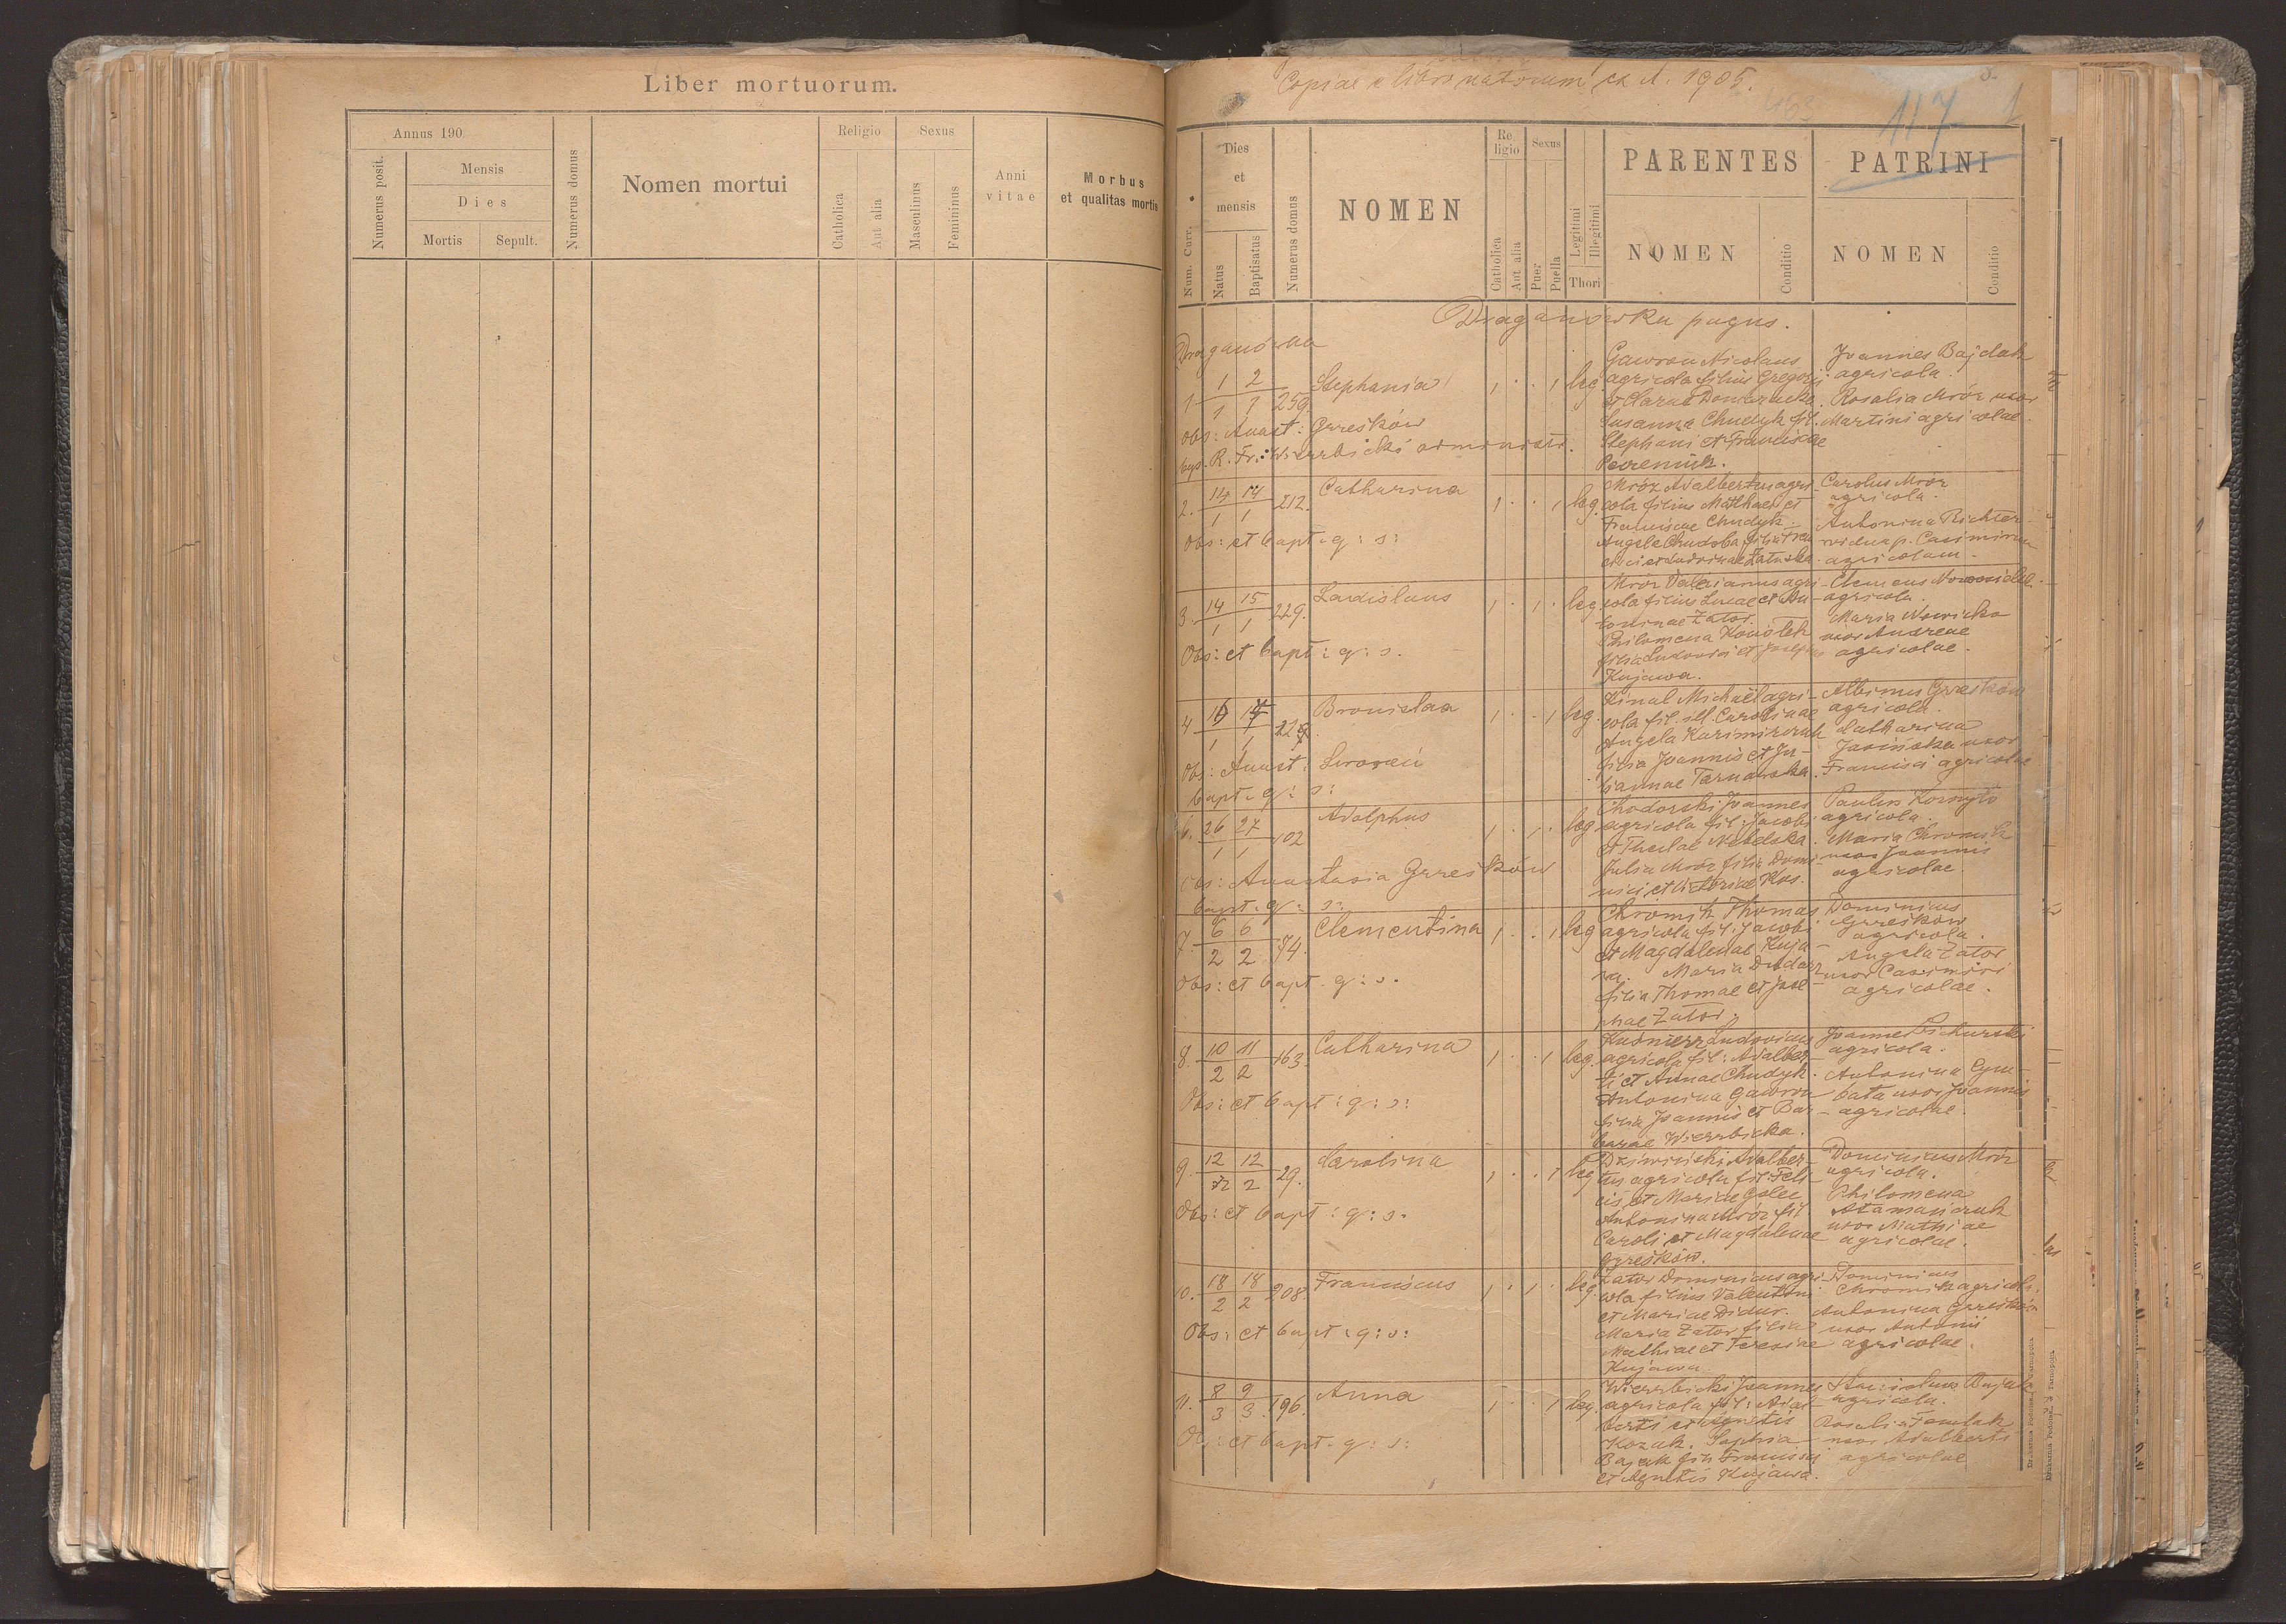 Liber mortuorum.
Annus 190
Numerus posit.
Mensis
Dies
Mortis
Sepult.
Numerus domus
Nomen mortui
Religio
Catholica
Aut alia
Sexus
Masculinus
Femininus
Anni
vitae
Morbus
et qualitas mortis
Copiae e libro natorum ex A. 1905.
117
1
Num. Curr.
Dies
et
mensis
Natus
Baptisatus
Numerus domus
NOMEN
Re
ligio
Catholica
Aut alia
Sexus
Puer
Puella
Legitimi
Illegitimi
Thori
PARENTES
NOMEN
Conditio
PATRINI
NOMEN
Conditio
Draganówka pagus.
Draganówka
1 1/1 2/1 259. Stephania 1 . . 1 leg.
Gawron Nicolaus
agricola filius Gregorii
et Clarae
Susanna Chudyk fil.
Stephani et Franciscae
Joannes Bajdak
agricola.
Rosalia Mróz uxor
Martini agricolae
obs: Anast: Grześków
bap. R. Fr: Wierzbicki administr.
2. 14/1 14/1 212. Catharina 1 . . 1 leg.
Mróz Adalbertus agri
cola filius Mathaei et
Franciscae Chudyk.
Angela Chudoba filia Fran
cisci et Ludovicae Załuska.
Carolus Mróz
agricola.
Antonina Richter
vidua p. Casimirum
agricolam.
Obs: et bapt. q: s:
3. 14/1 15/1 229. Ladislaus 1 . 1 . leg.
Mróz Valerianus agri-
cola filius Lucae et An-
toninae Zator.
Philomena
filia Ludovici et Josephae
Kujawa.
Clemens
agricola.
Maria
uxor Andreae
agricolae.
Obs: et bapt: q: s.
4 Bronislaa 1 . . 1 leg.
Kinal Michaël agri-
cola fil. ill. Carolinae
Angela Kazimirczuk
filia Joannis et Ju-
liannae Tarnawska.
Albinus Grześków
agricola.
Catharina
Jasińska uxor
Francisci agricolae
Ob: Anast:
bapt. q: s:
6. 26/1 27/1 102 Adolphus 1 . 1 . leg.
Chodorski Joannes
agricola fil: Jacobi
et Theclae
Julia Mróz filia Domi-
nici et Victoriae Kos.
Paulus Kornyło
agricola.
Maria Chromik
uxor Joannis
agricolae
obs: Anastasia Grześków
bapt. q: s:
7. 6/2 6/2 74. Clementina 1 . . 1 leg
Chromik Thomas
agricola fil: Jacobi
et Magdalenae Kuja-
wa. Maria
filia Thomae et Jose-
phae Zator.
Dominicus
Grześków
agricola.
Angela Zator
uxor Casimiri
agricolae.
Obs: et bapt. q: s.
8. 10/2 11/2 163. Catharina 1 . . 1 leg.
Kuśnierz Ludovicus
agricola fil: Adalber-
ti et Annae Chudyk.
Antonina Gawron
filia Joannis et Bar-
barae Wierzbicka.
Joannes
agricola.
Antonina Cym-
bała uxor Joannis
agricolae.
Obs: et bapt: q: s:
9. 12/2 12/2 29. Carolina 1 . . 1 leg.
Adalber-
tus agricola fil: Feli-
cis et Mariae Golec
Antonina Mróz fil.
Caroli et Magdalenae
Grześków.
Dominicus Mróz
agricola.
Philomena
Atamańczuk
uxor Mathiae
agricolae.
Obs: et bapt: q: s.
10. 18/2 18/2 208. Franciscus 1 . 1 . leg.
Zator Dominicus agri-
cola filius Valentini
et Mariae Didur.
Maria Zator filia
Mathiae et Teresiae
Kujawa.
Dominicus
Chromik agricola.
Antonina Grześków
uxor Antonii
agricolae.
Obs: et bapt: q: s:
11. 8/3 9/3 196. Anna 1 . . 1 leg.
Wierzbicki Joannes
agricola fil: Adal-
berti et Agnetis
Kozak. Sophia
Bajak fil: Francisci
et Agnetis Kujawa.
Stanislaus Bajak
agricola.
Rosalia
uxor Adalberti
agricolae
Ob: et bapt. q: s: